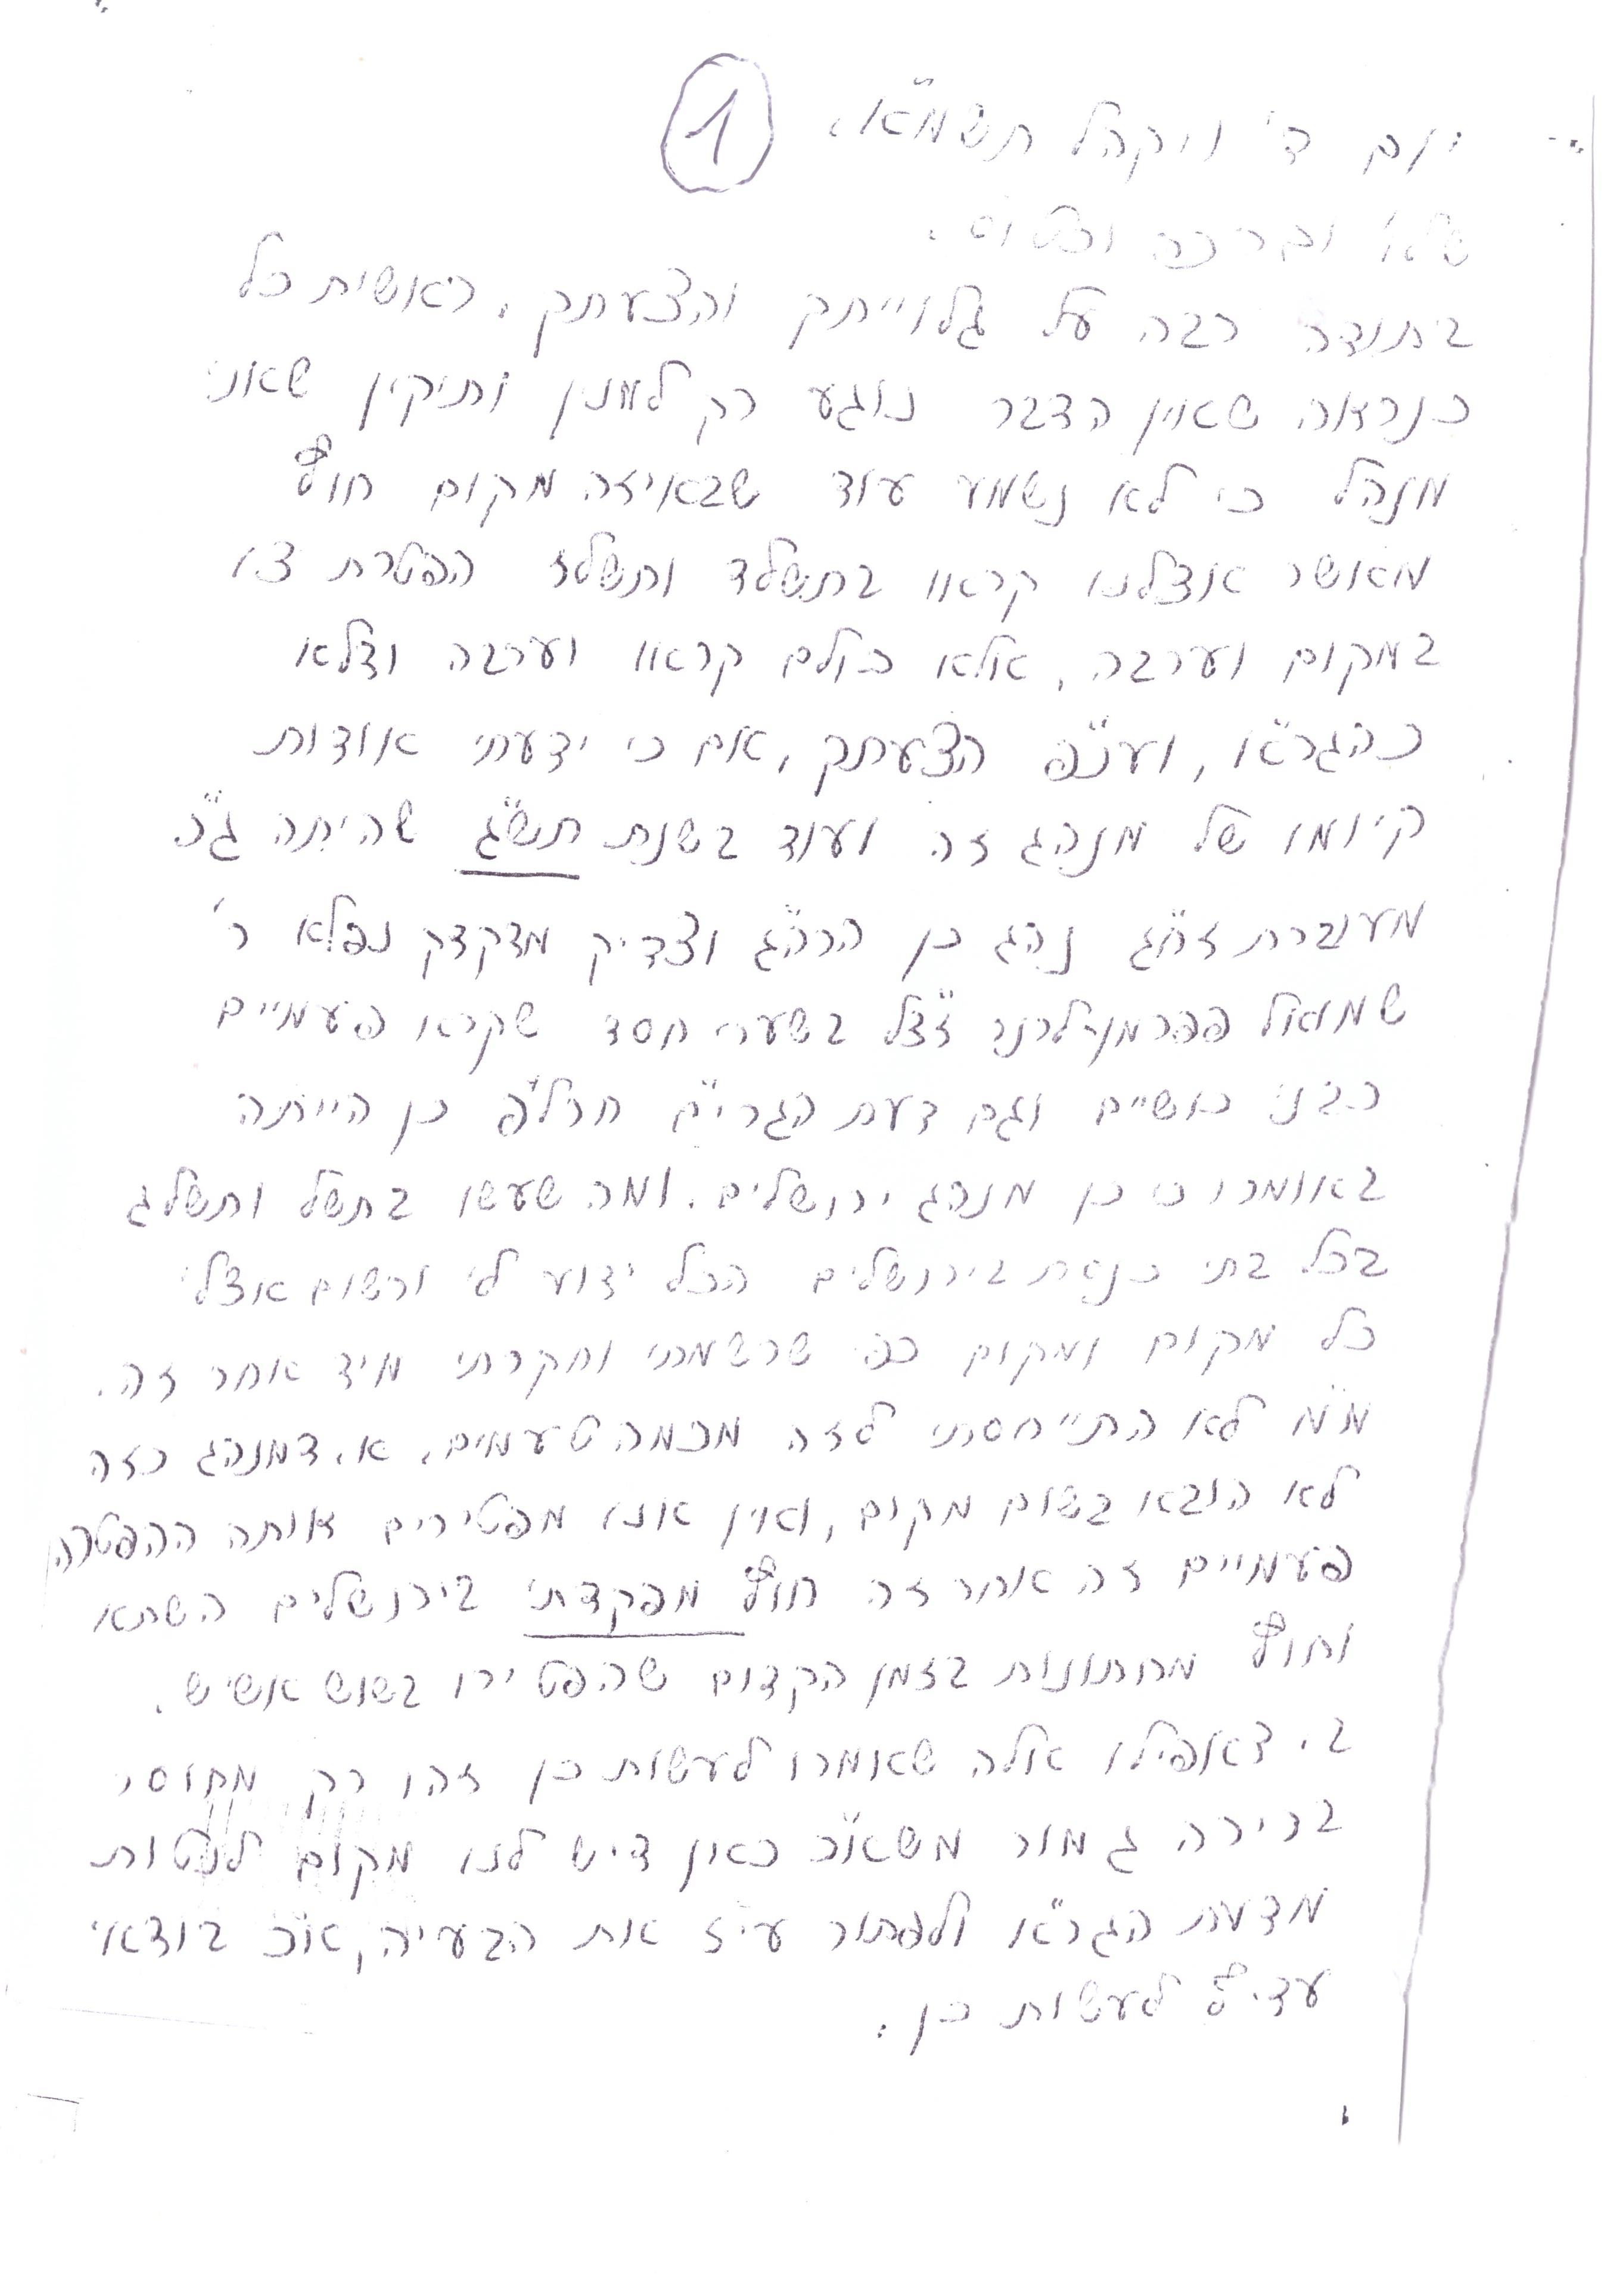 1
יום ד' ויקהל תשמ"א.
שלו' וברכה וכט"ס.
בתודה רבה על גלוייתך והצעתך. ראשית כל
כנראה שאין הדבר נוגע רק למנין ותיקין שאני
מנהל כי לא נשמע עוד שבאיזה מקום חוץ
מאשר אצלנו קראו בתשלד ותשלז הפטרת צו
במקום וערבה, אלא כולם קראו וערבה ודלא
כהגר"א, ועכ"פ הצעתך, אם כי ידעתי אודות
קיומו של מנהג זה ועוד בשנת תש"ג שהיתה ג"כ
מעוברת זח"ג נהג כן הרה"ג וצדיק מדקדק נפלא ר'
שמואל פפרמן-לרנר ז"צל בשערי חסד שקרא פעמיים
כבני כושיים וגם דעת הגרי"מ חרל"פ כן הייתה
באומרו כי כן מנהג ירושלים. ומה שעשו בתשל ותשלג
בכל בתי כנסת בירושלים הכל ידוע לי ורשום אצלי
כל מקום ומקום כפי שרשמתי וחקרתי מיד אחר זה.
מ"מ לא התייחסתי לזה מכמה טעמים. א. דמנהג כזה
לא הובא בשום מקום, ואין אנו מפטירים אותה ההפטרה
פעמיים זה אחר זה חוץ מפקדתי בירושלים השתא
וחוץ מחתונות בזמן הקדום שהפטירו בשוש אשיש.
ב. דאפילו אלה שאמרו לעשות כן זהו רק מחוסר
ברירה גמור משא"כ כאן דיש לנו מקום לנטות
מדעת הגר"א ולפתור עי"ז את הבעייה, א"כ בודאי
עדיף לעשות כן.